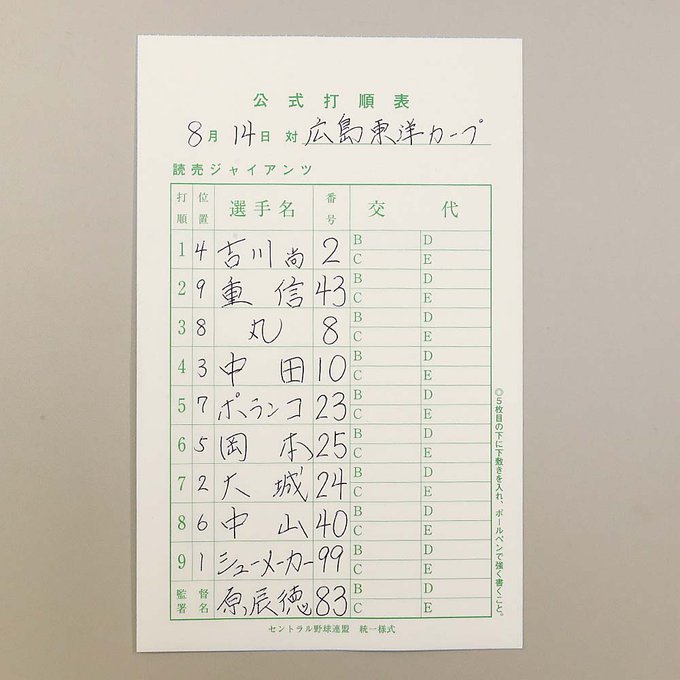 公式打順表
8月14日 対 広島東洋カープ
読売ジャイアンツ
打順 位置 選手名 番号 交代
1 4 吉川尚 2 B D C E
2 9 重信 43 B D C E
3 8 丸 8 B D C E
4 3 中田 10 B D C E
5 7 ポランコ 23 B D C E
6 5 岡本 25 B D C E
7 2 大城 24 B D C E
8 6 中山 40 B D C E
9 1 シューメーカー 99 B D C E
監督署名 原辰徳 83 B D C E
セントラル野球連盟 統一様式
◎5枚目の下に下敷きを入れ、ボールペンで強く書くこと。